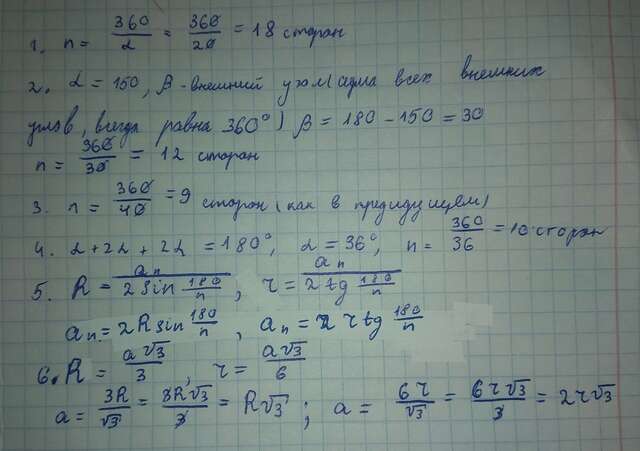 1. n = 360/α = 360/20 = 18 сторон
2. α = 150, β - внешний угол (сумма всех внешних
углов, всегда равна 360°) β = 180 - 150 = 30
n = 360/30 = 12 сторон
3. n = 360/40 = 9 сторон (как в предидущем)
4. α + 2α + 2α = 180°, α = 36°, n = 360/36 = 10 сторон
5. R = aₙ/(2 sin 180/n), r = aₙ/(2 tg 180/n)
aₙ = 2R sin 180/n, aₙ = 2 r tg 180/n
6. R = a√3/3, r = a√3/6
a = 3R/√3 = 3R√3/3 = R√3; a = 6r/√3 = 6r√3/3 = 2r√3